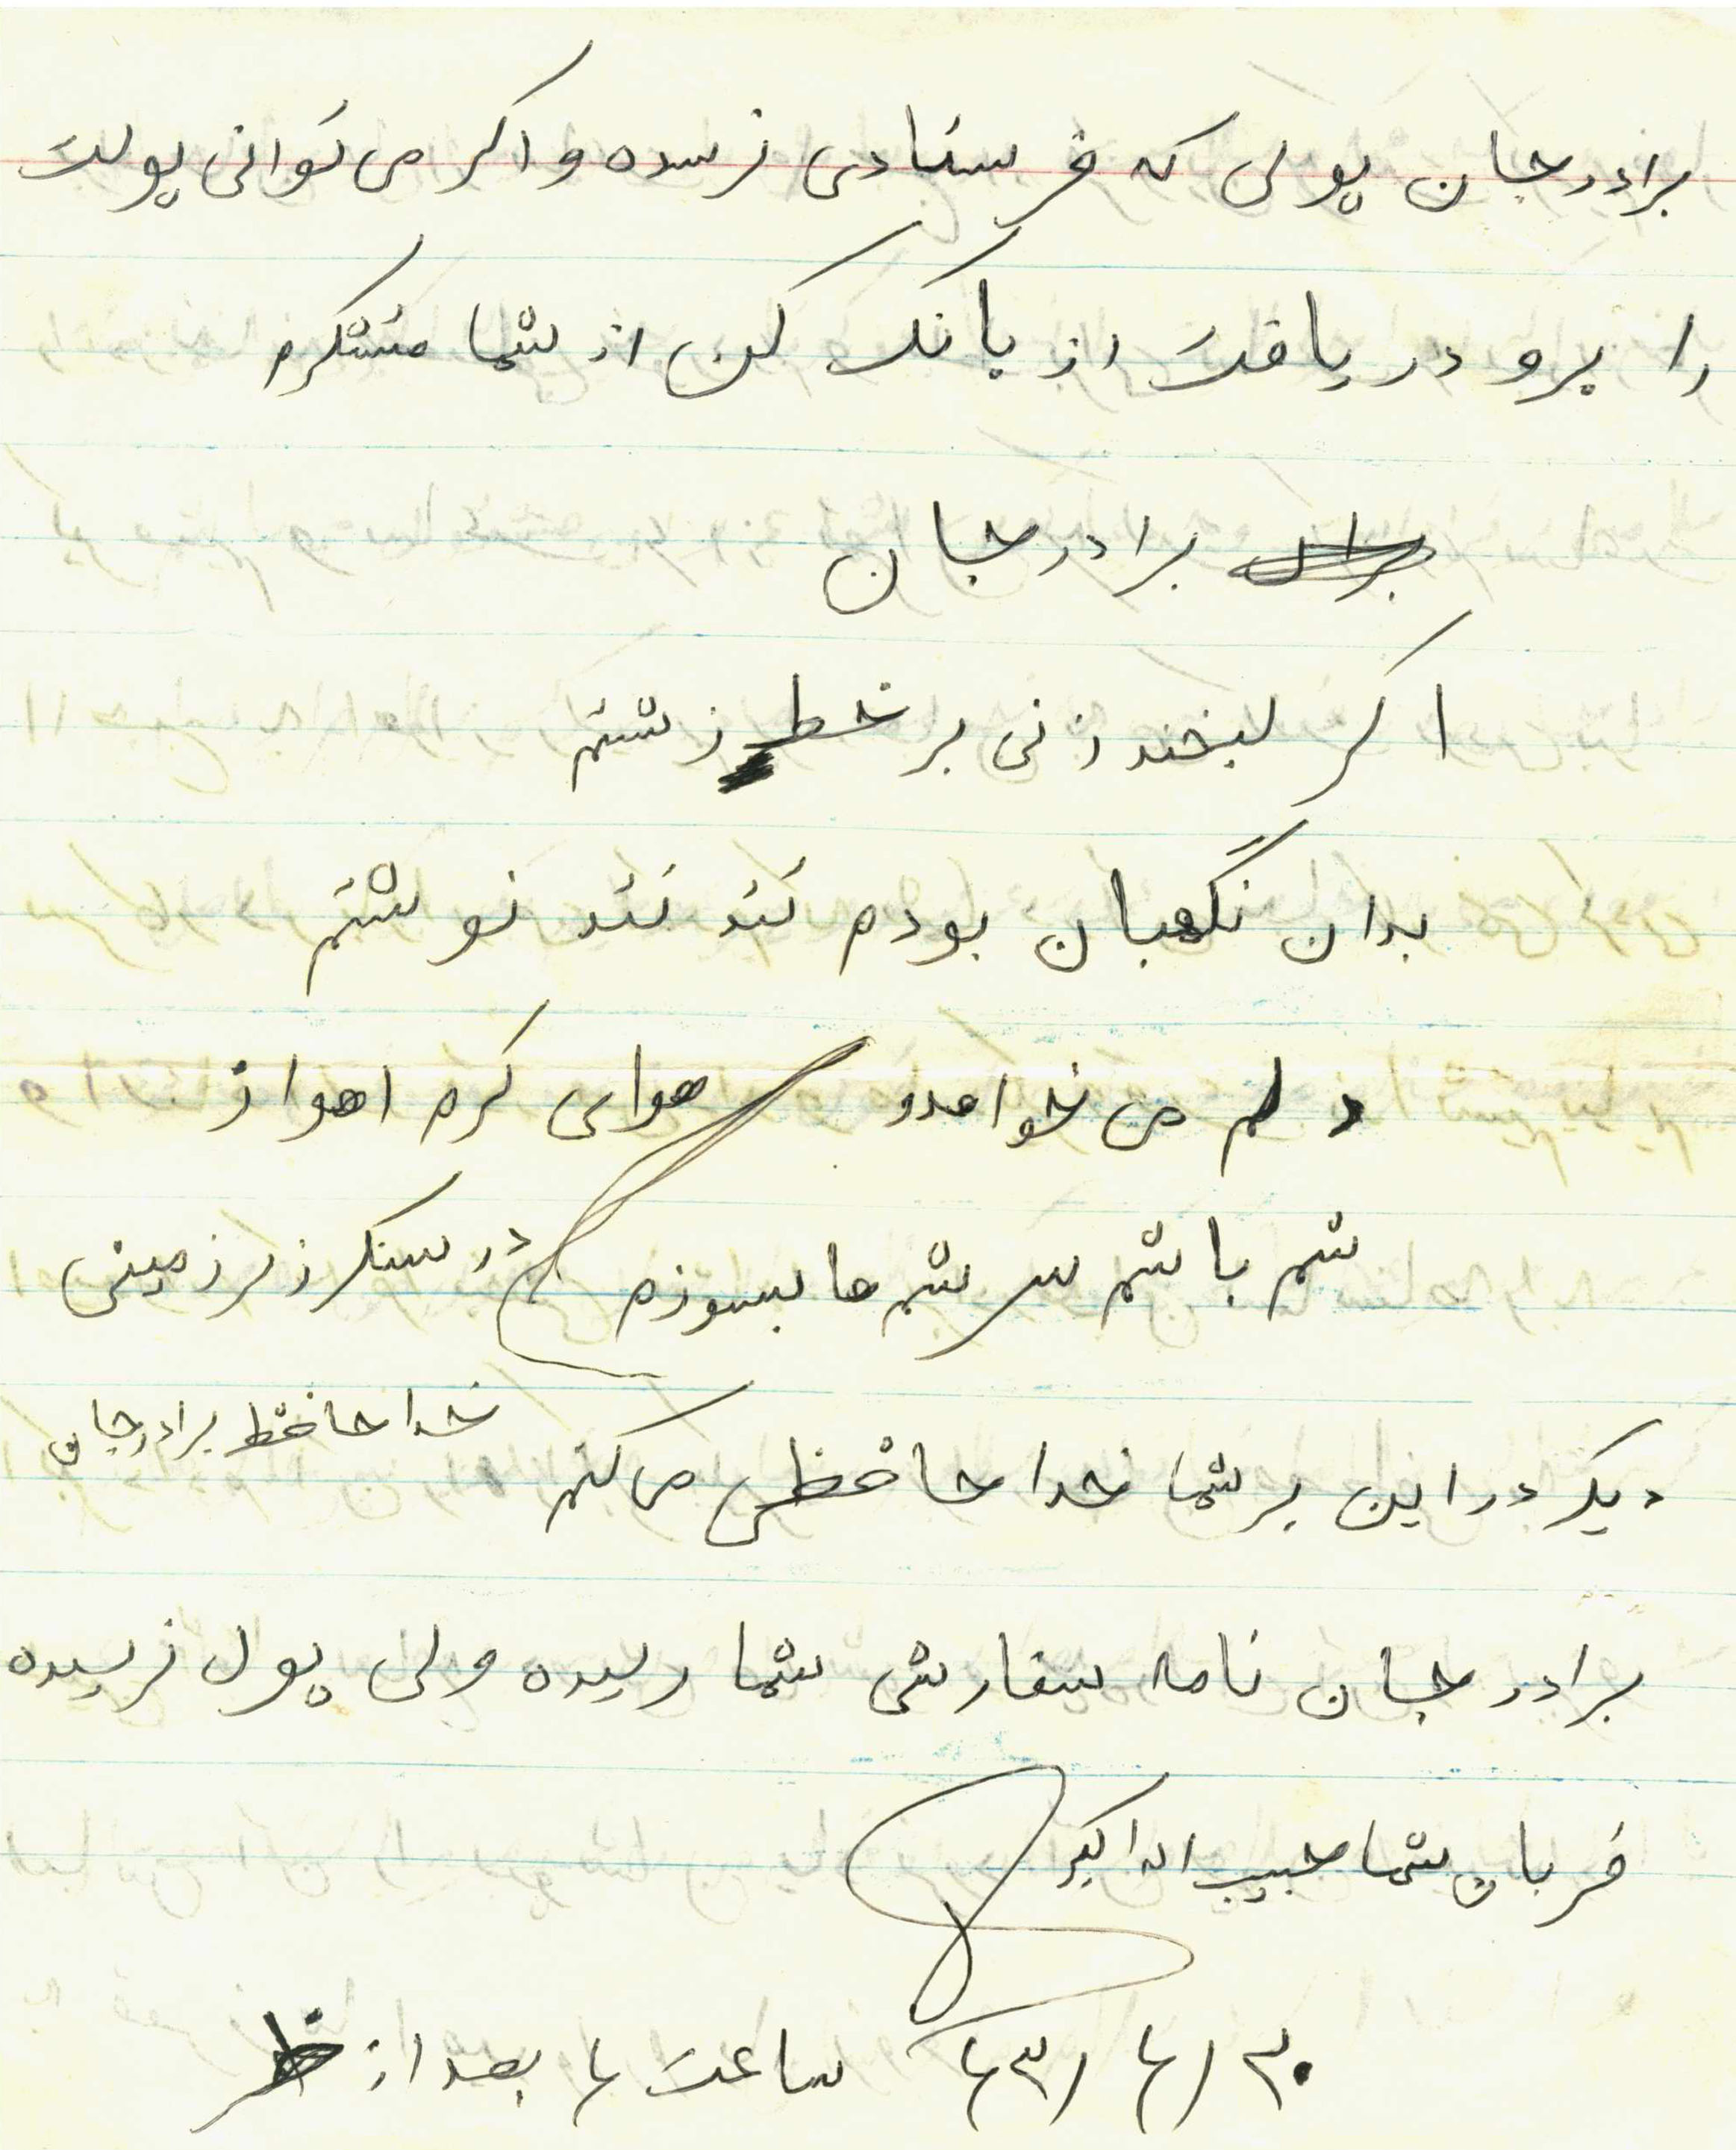 برادر جان پولی که فرستادی نرسده و اکر می توانی پولت
را برو دریافت از بانک کن از شما متشکرم
برادر جان
اکر لبخند زنی بر خط زشتم
بدان نگهبان بودم تند تند نوشتم
دلم می خواهدو هوای کرم اهواز
شم باشم سر شم ها بسوزم در سنکر زیرزمینی
دیکر در این بر شما خدا حافظی می کنم خدا حافظ برادر جان
برادر جان نامه سفارشی شما رسیده ولی پول نرسیده
قربان شما حبیب اله اکبر
۳۰/۴/۶۳ ساعت ۴ بعد از ظهر